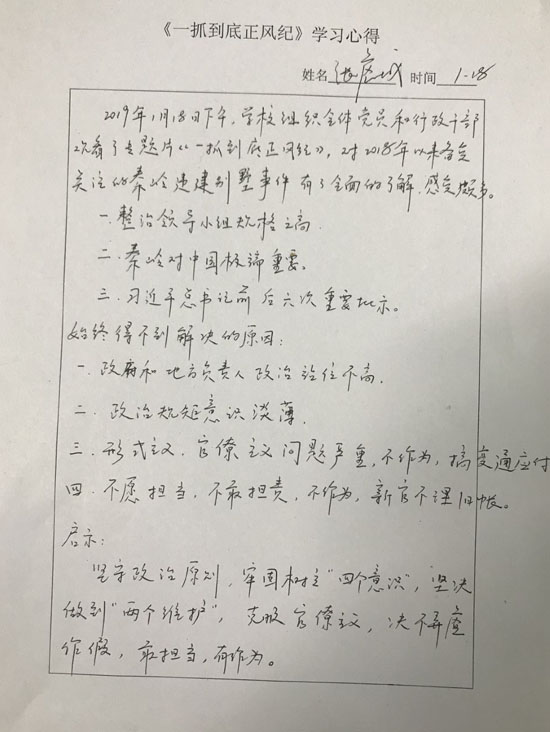 《一抓到底正风纪》学习心得
姓名 张 成 时间 1-18
2019年1月18日下午,学校组织全体党员和行政干部
观看了专题片《一抓到底正风纪》,对2018年以来备受
关注的秦岭违建别墅事件有了全面的了解,感受颇多。
一.整治领导小组规格之高.
二.秦岭对中国极端重要。
三.习近平总书记前后六次重要批示。
始终得不到解决的原因:
一.政府和地方负责人政治站位不高.
二.政治规矩意识淡薄.
三.形式主义.官僚主义问题严重,不作为,搞变通应付
四.不愿担当,不敢担责,不作为,新官不理旧帐。
启示:
坚守政治原则,牢固树立“四个意识”,坚决
做到“两个维护”,克服官僚主义,决不弄虚
作假,敢担当,有作为。